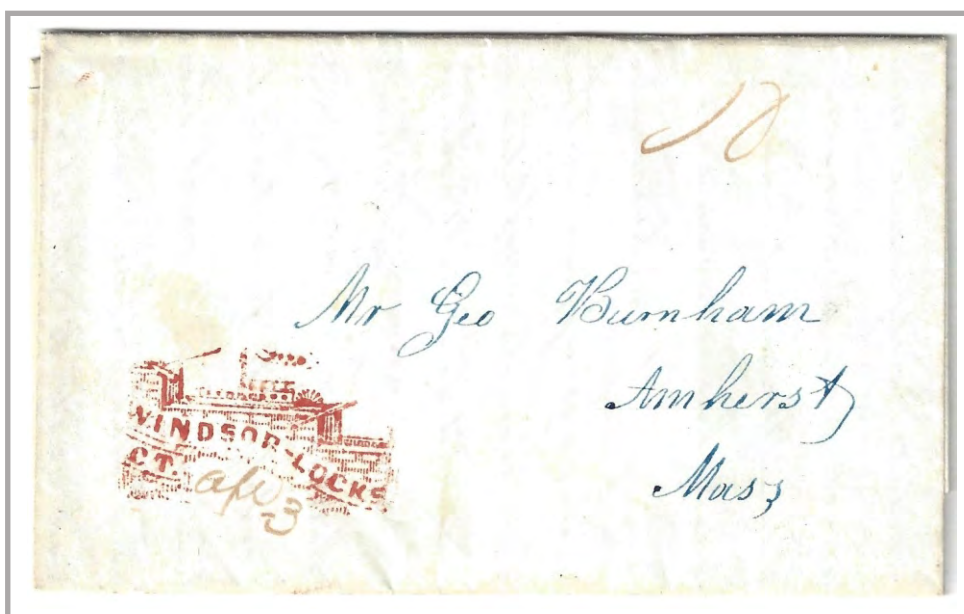 10
Mr Geo Burnham
Amherst
Mass
WINDSOR-LOCKS
CT. apr 3